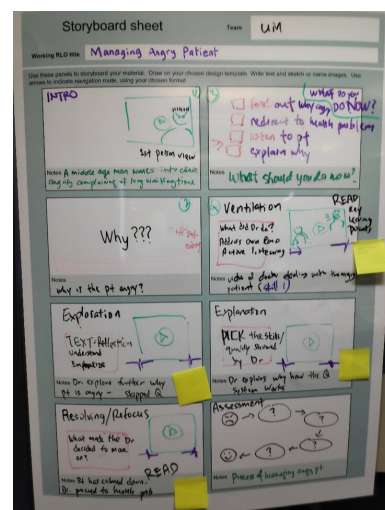 Storyboard sheet
Team UM
Working RLO title Managing Angry Patient
Use these panels to storyboard your material. Draw on your chosen design template. Write text and sketch or name images. Use
arrows to indicate navigation route, using your chosen format
INTRO
1st person view
Notes A middle age man walks into clinic
angrily complaining of long waiting time
what do you
DO NOW?
find out why angry
redirect to health problems
listen to pt
explain why
Notes What should you do now?
Why???
Notes
why is the pt angry?
Ventilation
READ
Key
learning
points
What did Dr do?
Address own emo
Active listening
Notes video of doctor dealing with the angry
patient (skill 1)
Exploration
TEXT: Reflection
Understand
Empathize
Notes Dr. explore further why
pt is angry - skipped Q
Explanation
PICK the skills/
quality showed
by Dr.
Notes Dr explains why how the Q
system works
Resolving/Refocus
What made the Dr
decided to move
on?
READ
Notes Pt has calmed down.
Dr. proceed to health prob
Assessment
?
?
?
?
?
Notes Process of managing angry pt